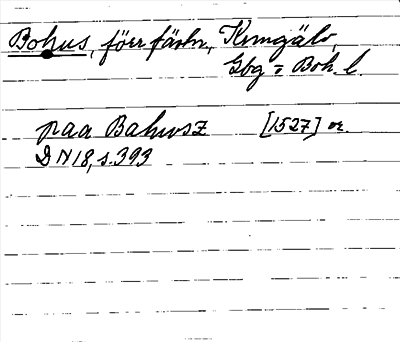 Bohus, förr fästn., Kungälv,
Gbg o Boh. l.
paa Bahusz [1527] or.
DN 18, s. 393